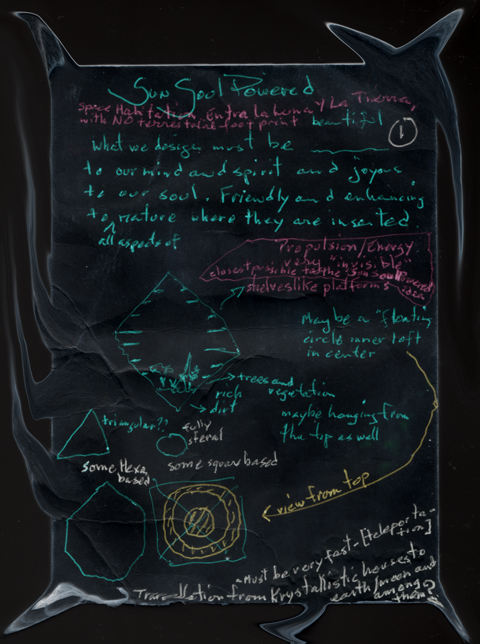 Sun Soul Powered
Space Habitation, Entra La Luna Y La Tierra,
with NO terrestrial footprint
①
what we design must be beautiful
to our mind and spirit and joyous
to our soul. Friendly and enhancing
to nature where they are inserted
^
all aspects of
Propulsion/Energy
very "invisible"
closest possible to the sun soul powered
idea
shelves like platforms
Maybe a "floating
circle inner loft
in center
trees and
rich vegetation
dirt
maybe hanging from
the top as well
triangular??
fully
some Hexa,
based
some square based
view from top
Must be very fast - [teleporta-
tion]
Translation from Krystallistic houses to
earth/moon and
among
them?